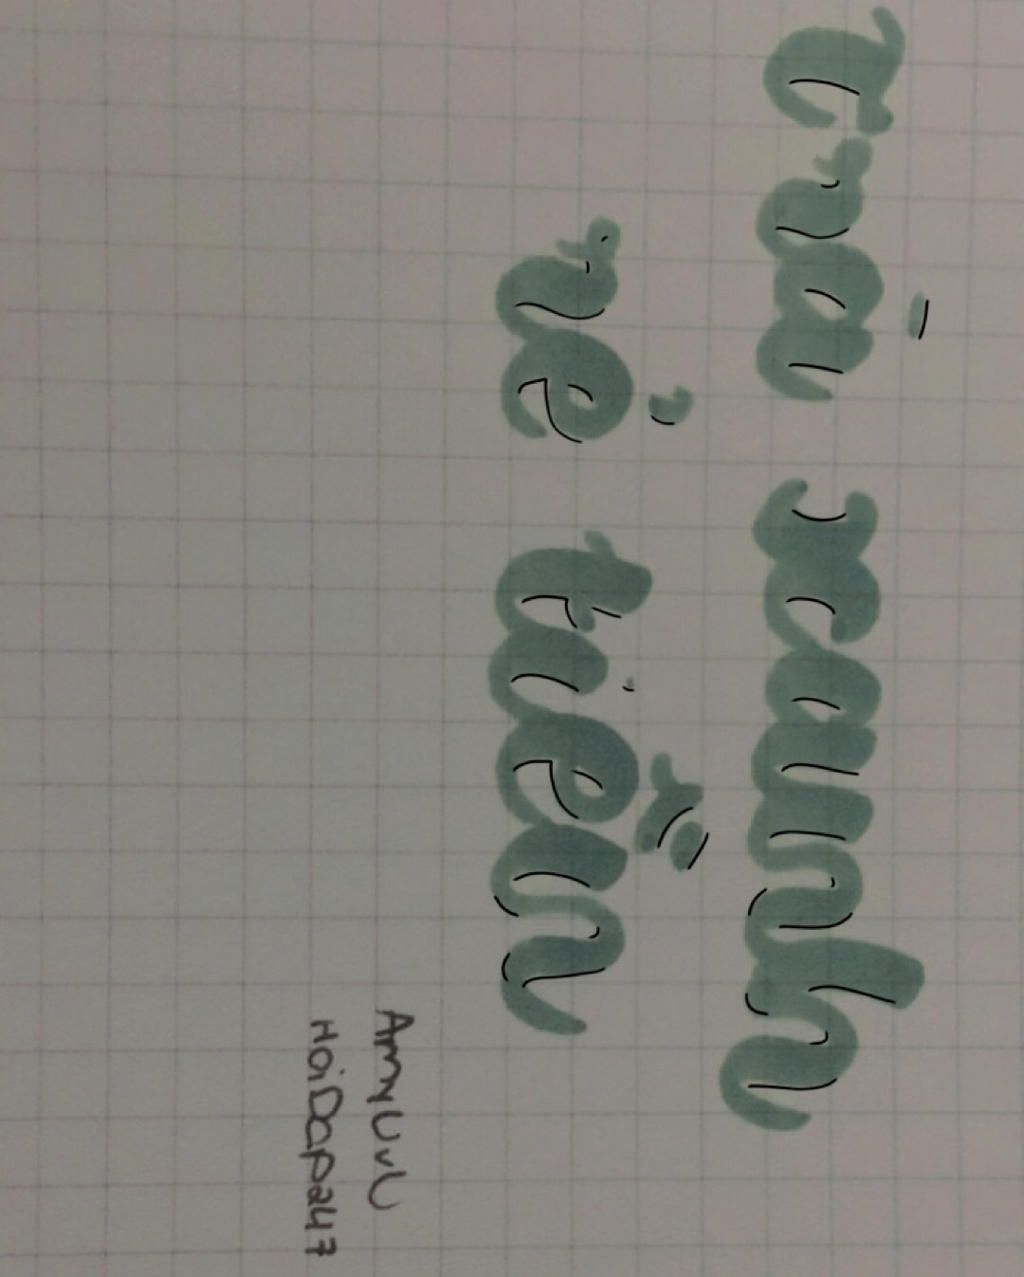 Trà xanh
rẻ tiền
AmyUvU
HoiDap247